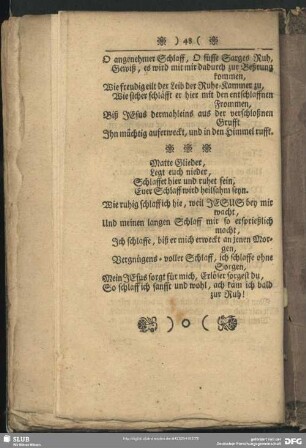 ) 48 (
O angenehmer Schlaff, O süsse Sarges Ruh,
Gewiß, es wird mit mir dadurch zur Beßrung
kommen,
Wie freudig eilt der Leib der Ruhe-Kammer zu,
Wie sicher schläfft er hier mit den entschlaffnen
Frommen,
Biß JEsus dermahleins aus der verschloßnen
Grufft
Ihn mächtig auferweckt, und in den Himmel rufft.
Matte Glieder,
Legt euch nieder,
Schlaffet hier und ruhet fein,
Euer Schlaff wird heilsahm seyn.
Wie ruhig schlaff ich hie, weil JESUS bey mir
wacht,
Und meinen langen Schlaff mir so ersprießlich
macht,
Ich schlaffe, biß er mich erweckt an jenen Mor-
gen,
Vergnügens-voller Schlaff, ich schlaffe ohne
Sorgen,
Mein JEsus sorgt für mich, Erlöser sorgest du,
So schlaff ich sanfft und wohl, ach käm ich bald
zur Ruh!
) o (
SLUB
Wir führen Wissen.
DFG